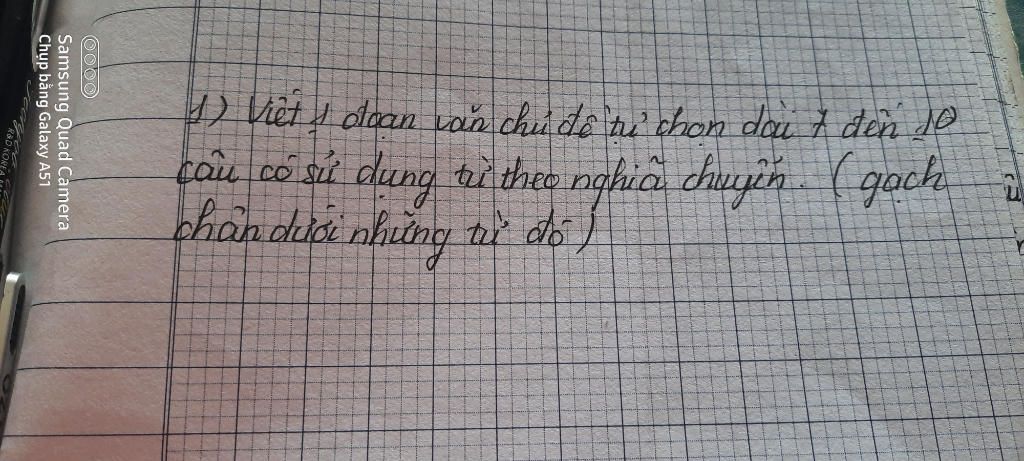 1) Viết 1 đoạn văn chủ đề tự chọn dài 7 đến 10
câu có sử dụng từ theo nghĩa chuyển. (gạch
chân dưới những từ đó)
Samsung Quad Camera
Chụp bằng Galaxy A51